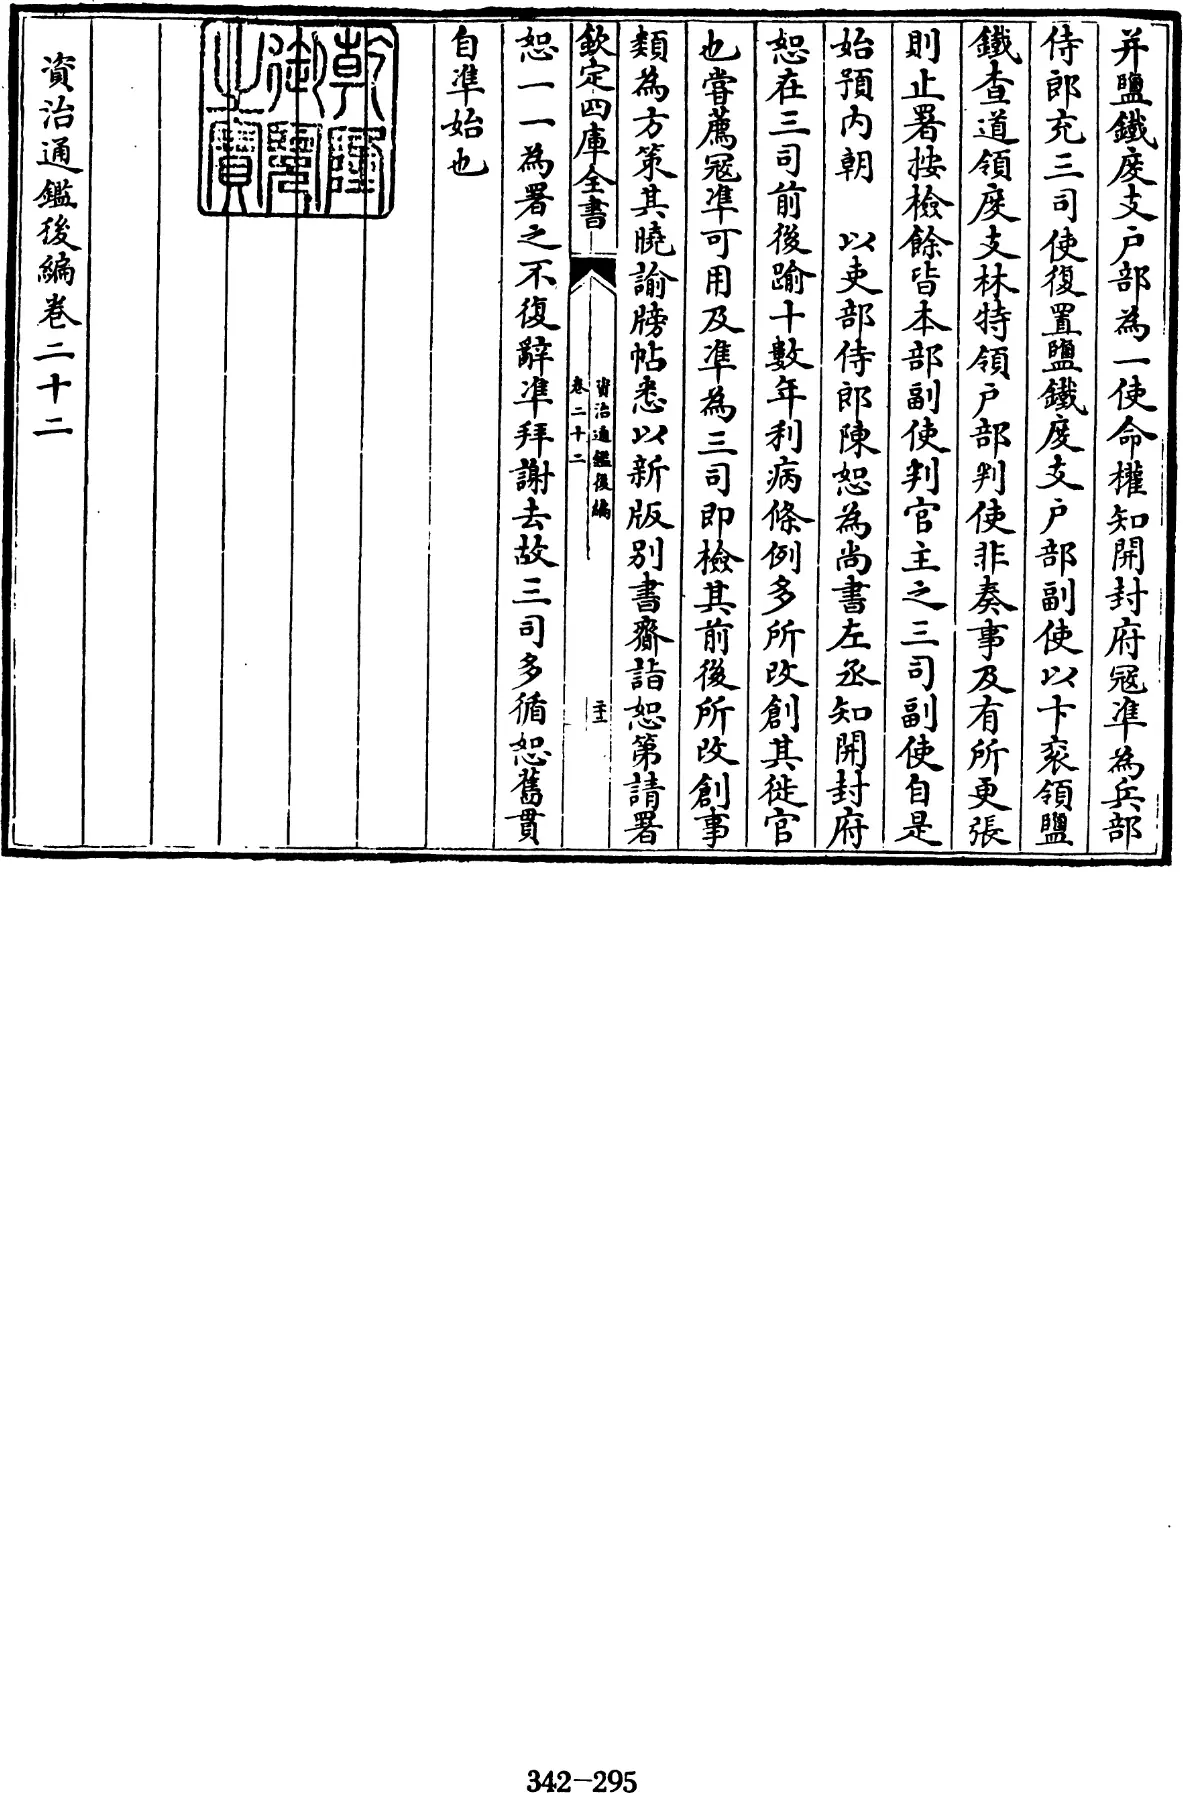 并鹽鐵度支户部為一使命權知開封府冦凖為兵部
侍郎充三司使復置鹽鐵度支户部副使以卞衮領鹽
鐵查道領度支林特領户部判使非奏事及有所更張
則止署按檢餘皆本部副使判官主之三司副使自是
始預内朝　以吏部侍郎陳恕為尚書左丞知開封府
恕在三司前後踰十數年利病條例多所改創其徙官
也嘗薦冦凖可用及凖為三司即檢其前後所改創事
類為方策其曉諭牓帖悉以新版别書齎詣恕第請署
欽定四庫全書
資治通鑑後編
卷二十二
恕一一為署之不復辭凖拜謝去故三司多循恕舊貫
自凖始也
乾隆御覽之寶
資治通鑑後編卷二十二
342-295